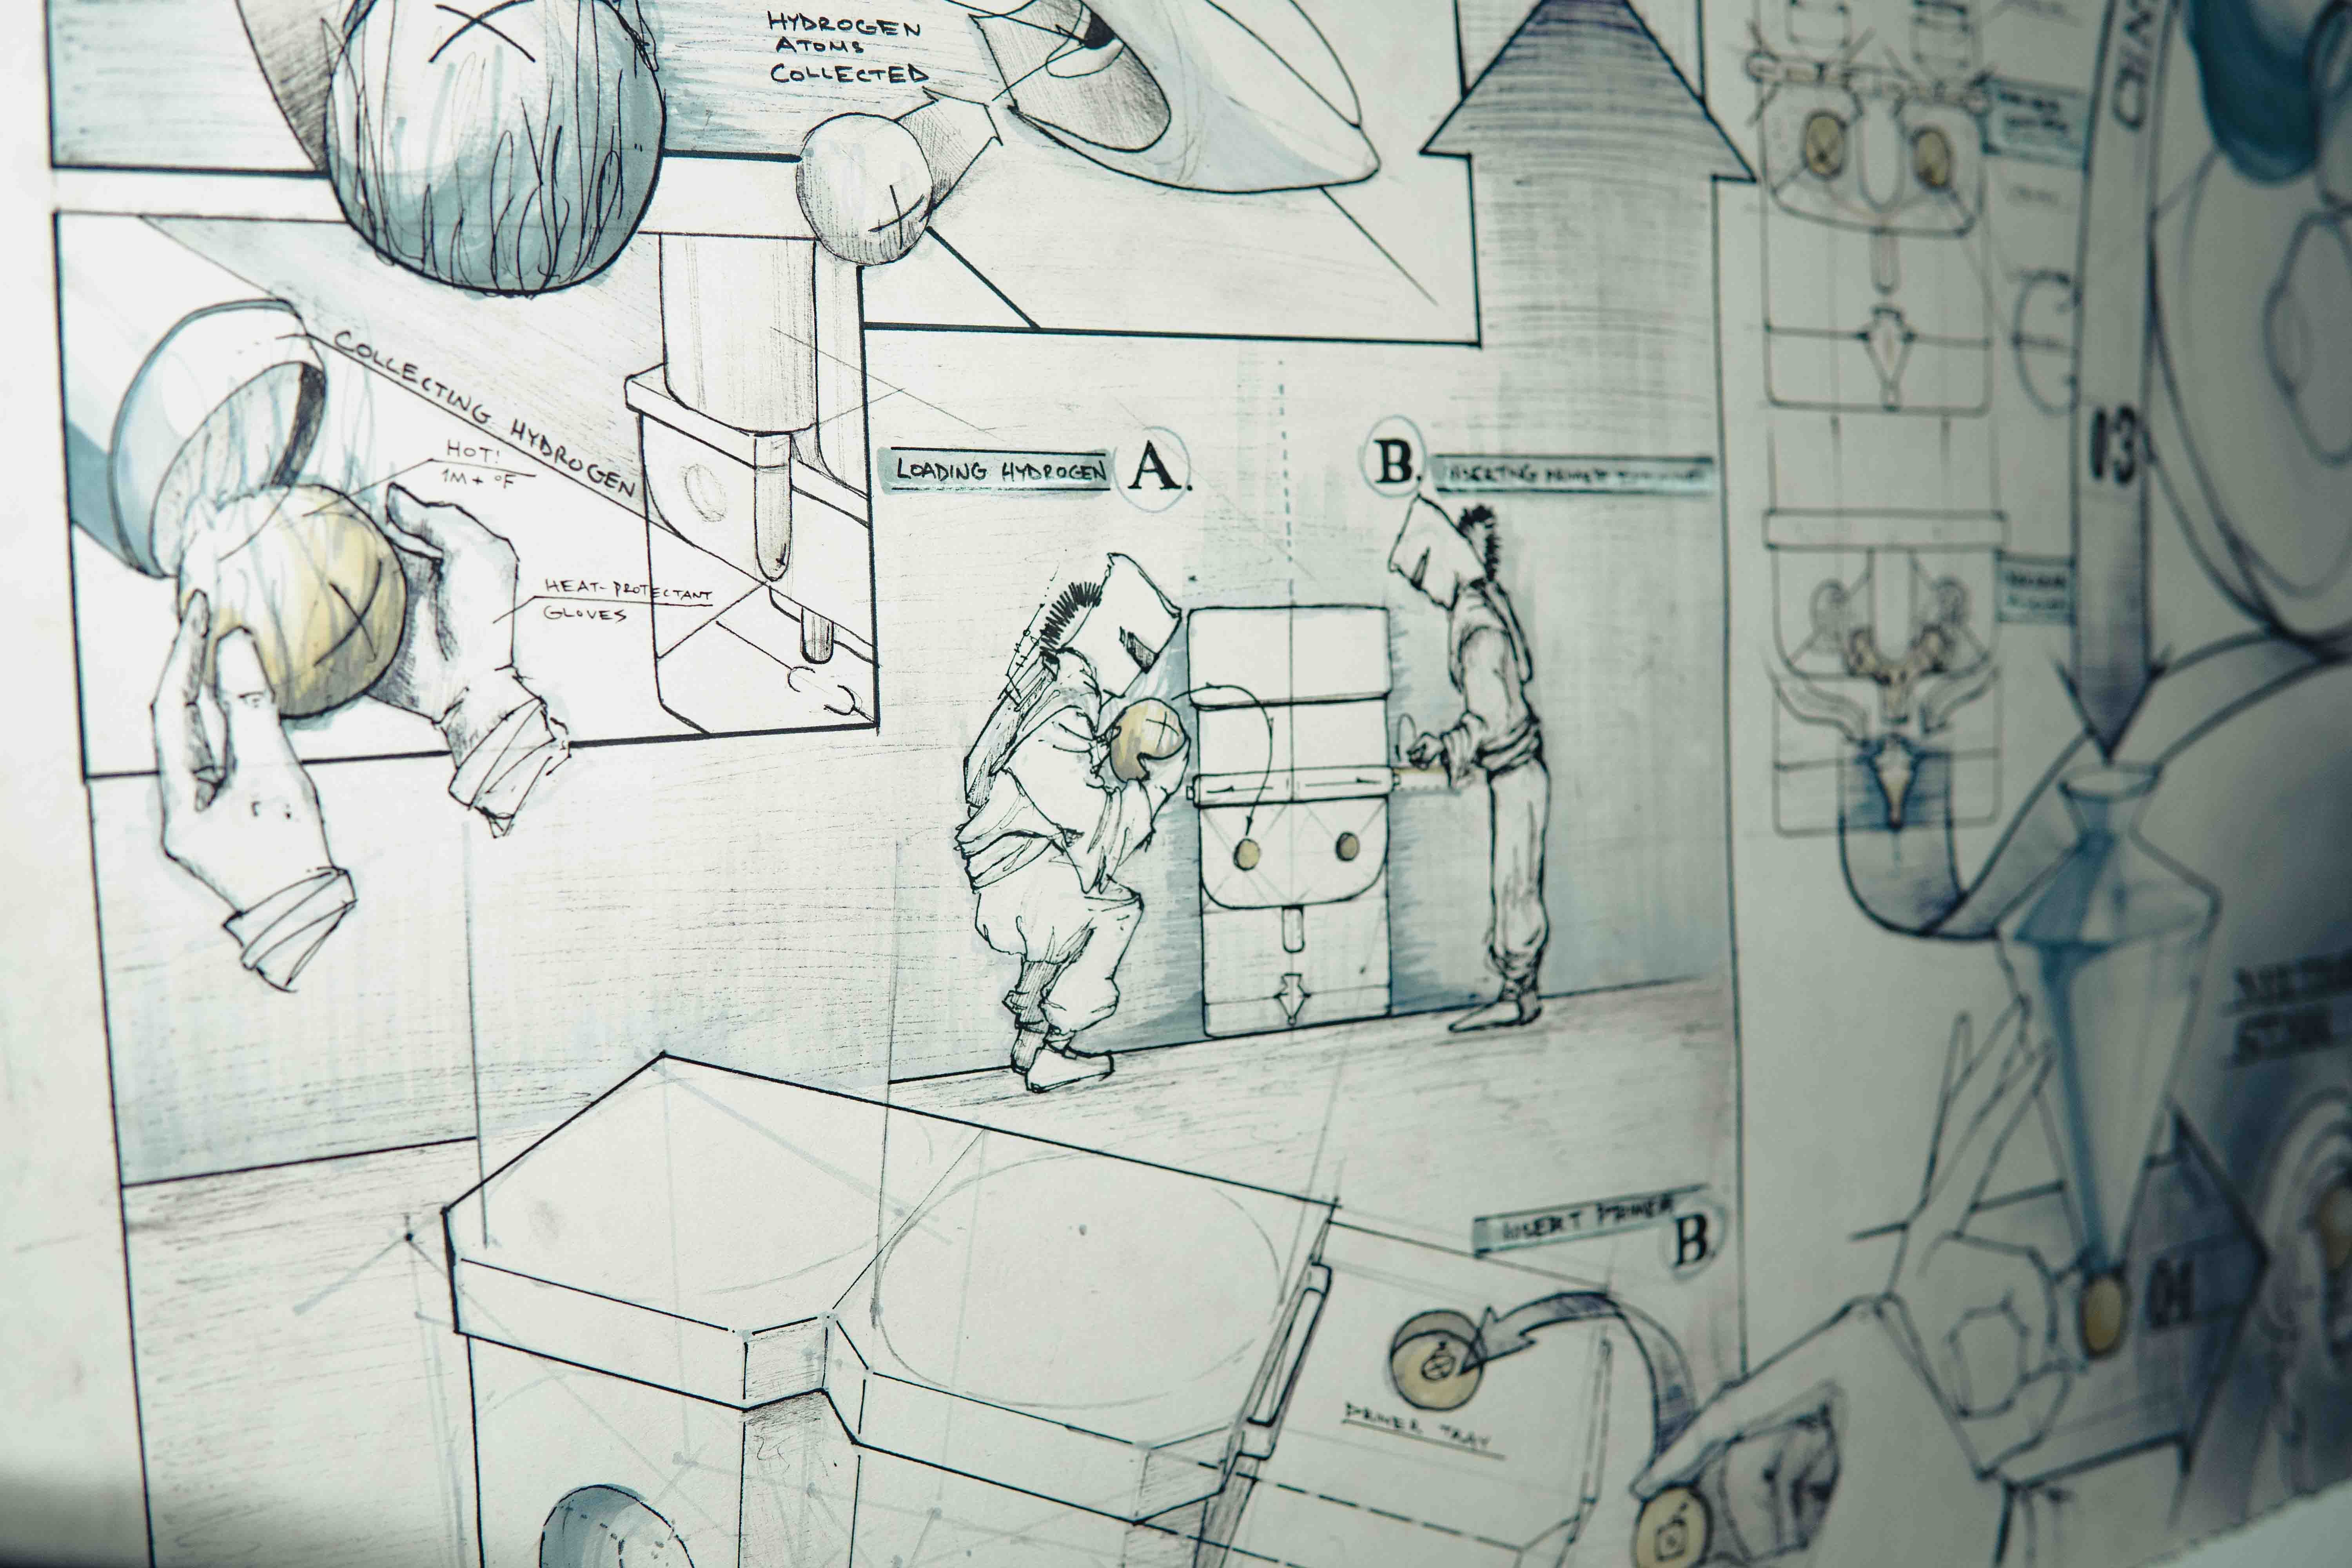 HYDROGEN
ATOMS
COLLECTED
COLLECTING HYDROGEN
HOT!
1M+ °F
HEAT-PROTECTANT
GLOVES
LOADING HYDROGEN A.
B. INSERTING PRIMER
INSERT PRIMER
B.
PRIMER TRAY
03
04